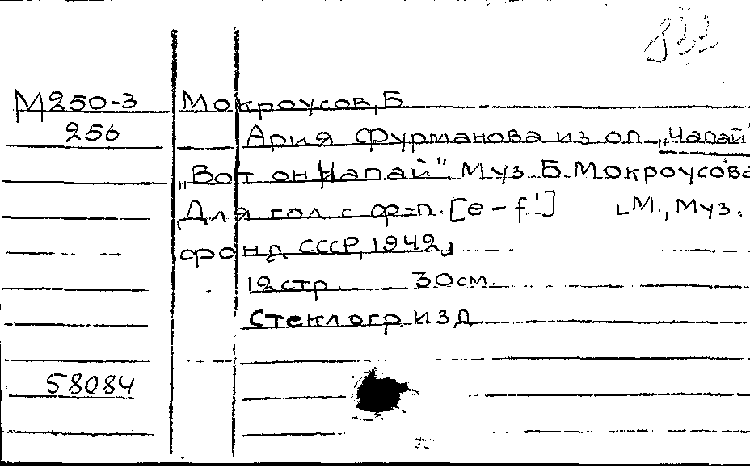 822
М250-3 Мокроусов, Б
256 Ария Фурманова из оп. „Чапай"
„Вот он Чапай" Муз. Б. Мокроусова
Для гол. с ф-п. [e – f'] [М., Муз.
фонд СССР, 1942]
12 стр. 30 см.
Стеклогр. изд
58084